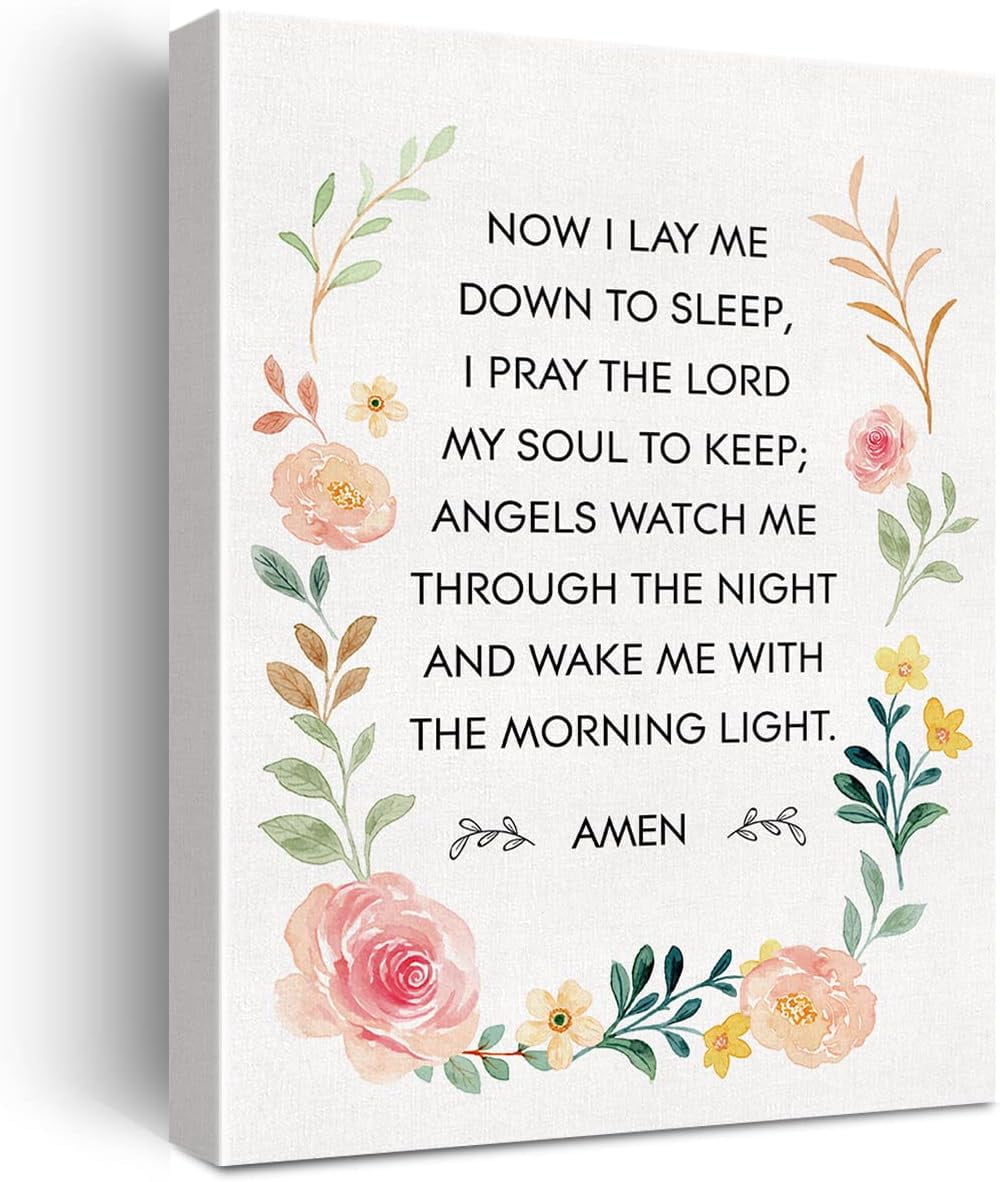 NOW I LAY ME
DOWN TO SLEEP,
I PRAY THE LORD
MY SOUL TO KEEP;
ANGELS WATCH ME
THROUGH THE NIGHT
AND WAKE ME WITH
THE MORNING LIGHT.
AMEN